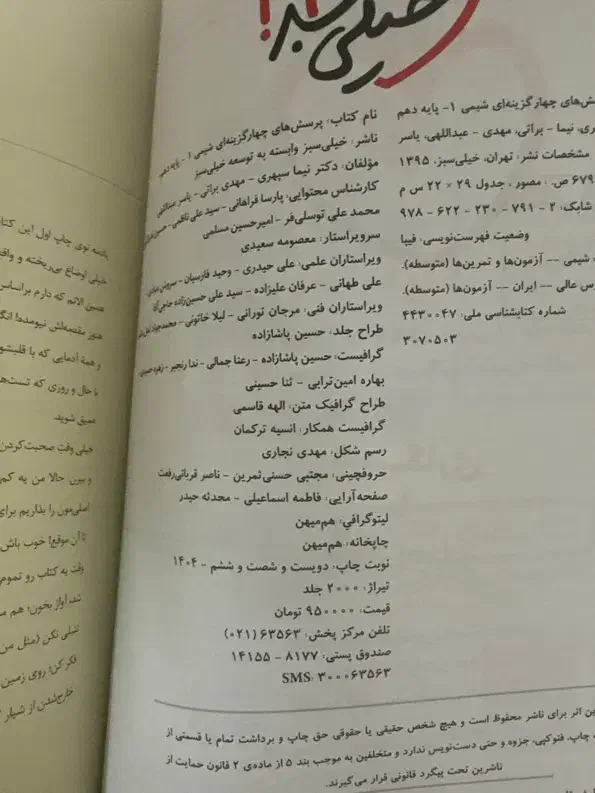 خیلی سبز!
نام کتاب: پرسش‌های چهارگزینه‌ای شیمی ۱ - پایه دهم
ناشر: خیلی‌سبز وابسته به توسعه خیلی‌سبز
مؤلفان: دکتر نیما سپهری - مهدی براتی - یاسر عبداللهی
کارشناس محتوایی: پارسا فراهانی - سید علی ناظمی -
محمد علی توسلی‌فر - امیرحسین مسلمی
سرویراستار: معصومه سعیدی
ویراستاران علمی: علی حیدری - وحید فارسیان - سروش
علی طهانی - عرفان علیزاده - سید علی حسین‌زاده
ویراستاران فنی: مرجان تورانی - لیلا خاتونی -
طراح جلد: حسین پاشازاده
گرافیست: حسین پاشازاده - رعنا جمالی - ندا رنجبر -
بهاره امین‌ترابی - ثنا حسینی
طراح گرافیک متن: الهه قاسمی
گرافیست همکار: انسیه ترکمان
رسم شکل: مهدی نجاری
حروفچینی: مجتبی حسنی‌ثمرین - ناصر قربانی‌رفعت
صفحه‌آرایی: فاطمه اسماعیلی - محدثه حیدر
لیتوگرافی: هم‌میهن
چاپخانه: هم‌میهن
نوبت چاپ: دویست و شصت و ششم - ۱۴۰۴
تیراژ: ۲۰۰۰ جلد
قیمت: ۹۵۰۰۰۰ تومان
تلفن مرکز پخش: ۶۳۵۶۳ (۰۲۱)
صندوق پستی: ۸۱۷۷ - ۱۴۱۵۵
SMS: ۳۰۰۰۶۳۵۶۳
چهارگزینه‌ای شیمی ۱- پایه دهم
نیما - براتی، مهدی - عبداللهی، یاسر
مشخصات نشر: تهران، خیلی‌سبز، ۱۳۹۵
۶۷۹ ص. : مصور، جدول ۲۹ × ۲۲ س م
شابک: ۲ - ۷۹۱ - ۲۳۰ - ۶۲۲ - ۹۷۸
وضعیت فهرست‌نویسی: فیپا
شیمی -- آزمون‌ها و تمرین‌ها (متوسطه).
عالی -- ایران - آزمون‌ها (متوسطه).
شماره کتابشناسی ملی: ۴۴۳۰۰۴۷
۳۰۷۰۵۰۳
اثر برای ناشر محفوظ است و هیچ شخص حقیقی یا حقوقی حق چاپ و برداشت تمام یا قسمتی از
چاپ، فتوکپی، جزوه و حتی دست‌نویس ندارد و متخلفین به موجب بند ۵ از ماده‌ی ۲ قانون حمایت از
ناشرین تحت پیگرد قانونی قرار می‌گیرند.
توی چاپ اول این
خیلی اوضاع بی‌ریخته و
همین الانم که دارم براساس
هنوز مقصدش نیومده!
و همهٔ آدمایی که با
با حال و روزی که
عمیق شوید.
خیلی وقت صحبت‌کردن
و ببرن. حالا من یه کم
اصلی‌مون را بذاریم برای
تا آن موقع! خوب باش
وقت به کتاب رو تموم
شد، آواز بخون؛ هم
تنبلی نکن (مثل من
فکر کن؛ روی زمین
خارج‌شدن از شیار